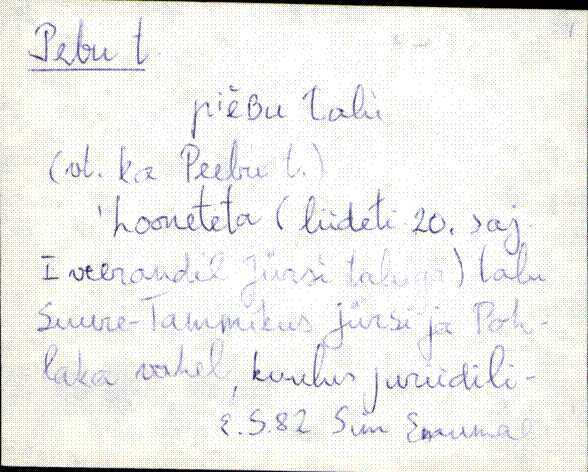 Pebu t.
piĕBu talu
(vt. ka Peebu t.)
'hooneteta (liideti 20. saj.
I veerandil Jürsi taluga) talu
Suure-Tammikus Jürsi ja Poh-
laka vahel, kuulus juriidili-
E.S.82 Siim